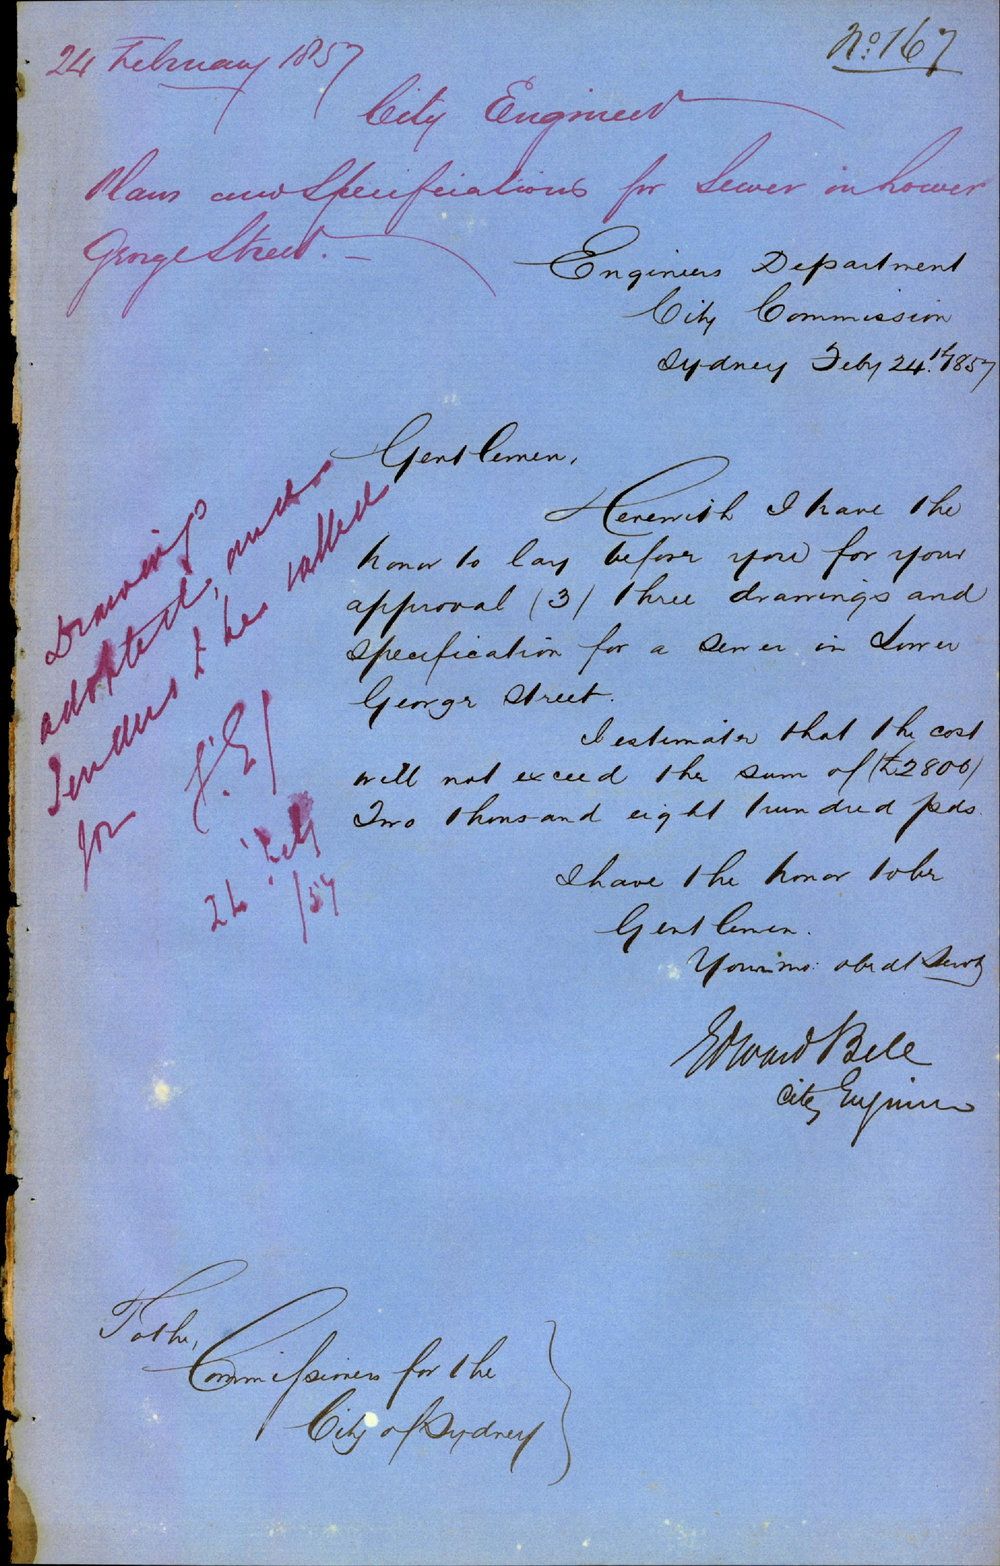 No. 167
24 February 1857
City Engineer
Plans and Specifications for Sewer in Lower
George Street. —
Engineers Department
City Commission
Sydney Feby 24th. 1857
Gentlemen,
Herewith I have the
honor to lay before you for your
approval (3) three drawings and
specification for a sewer in Lower
George Street.
I estimate that the cost
will not exceed the sum of (£2800)
Two thousand eight hundred pds.
I have the honor to be
Gentlemen.
Your mo: obedt Servt
Edward Bell
City Engineer
To the,
Commissioners for the
City of Sydney
Drawings
adopted, and
Tenders to be called
for
24 Feby
/57